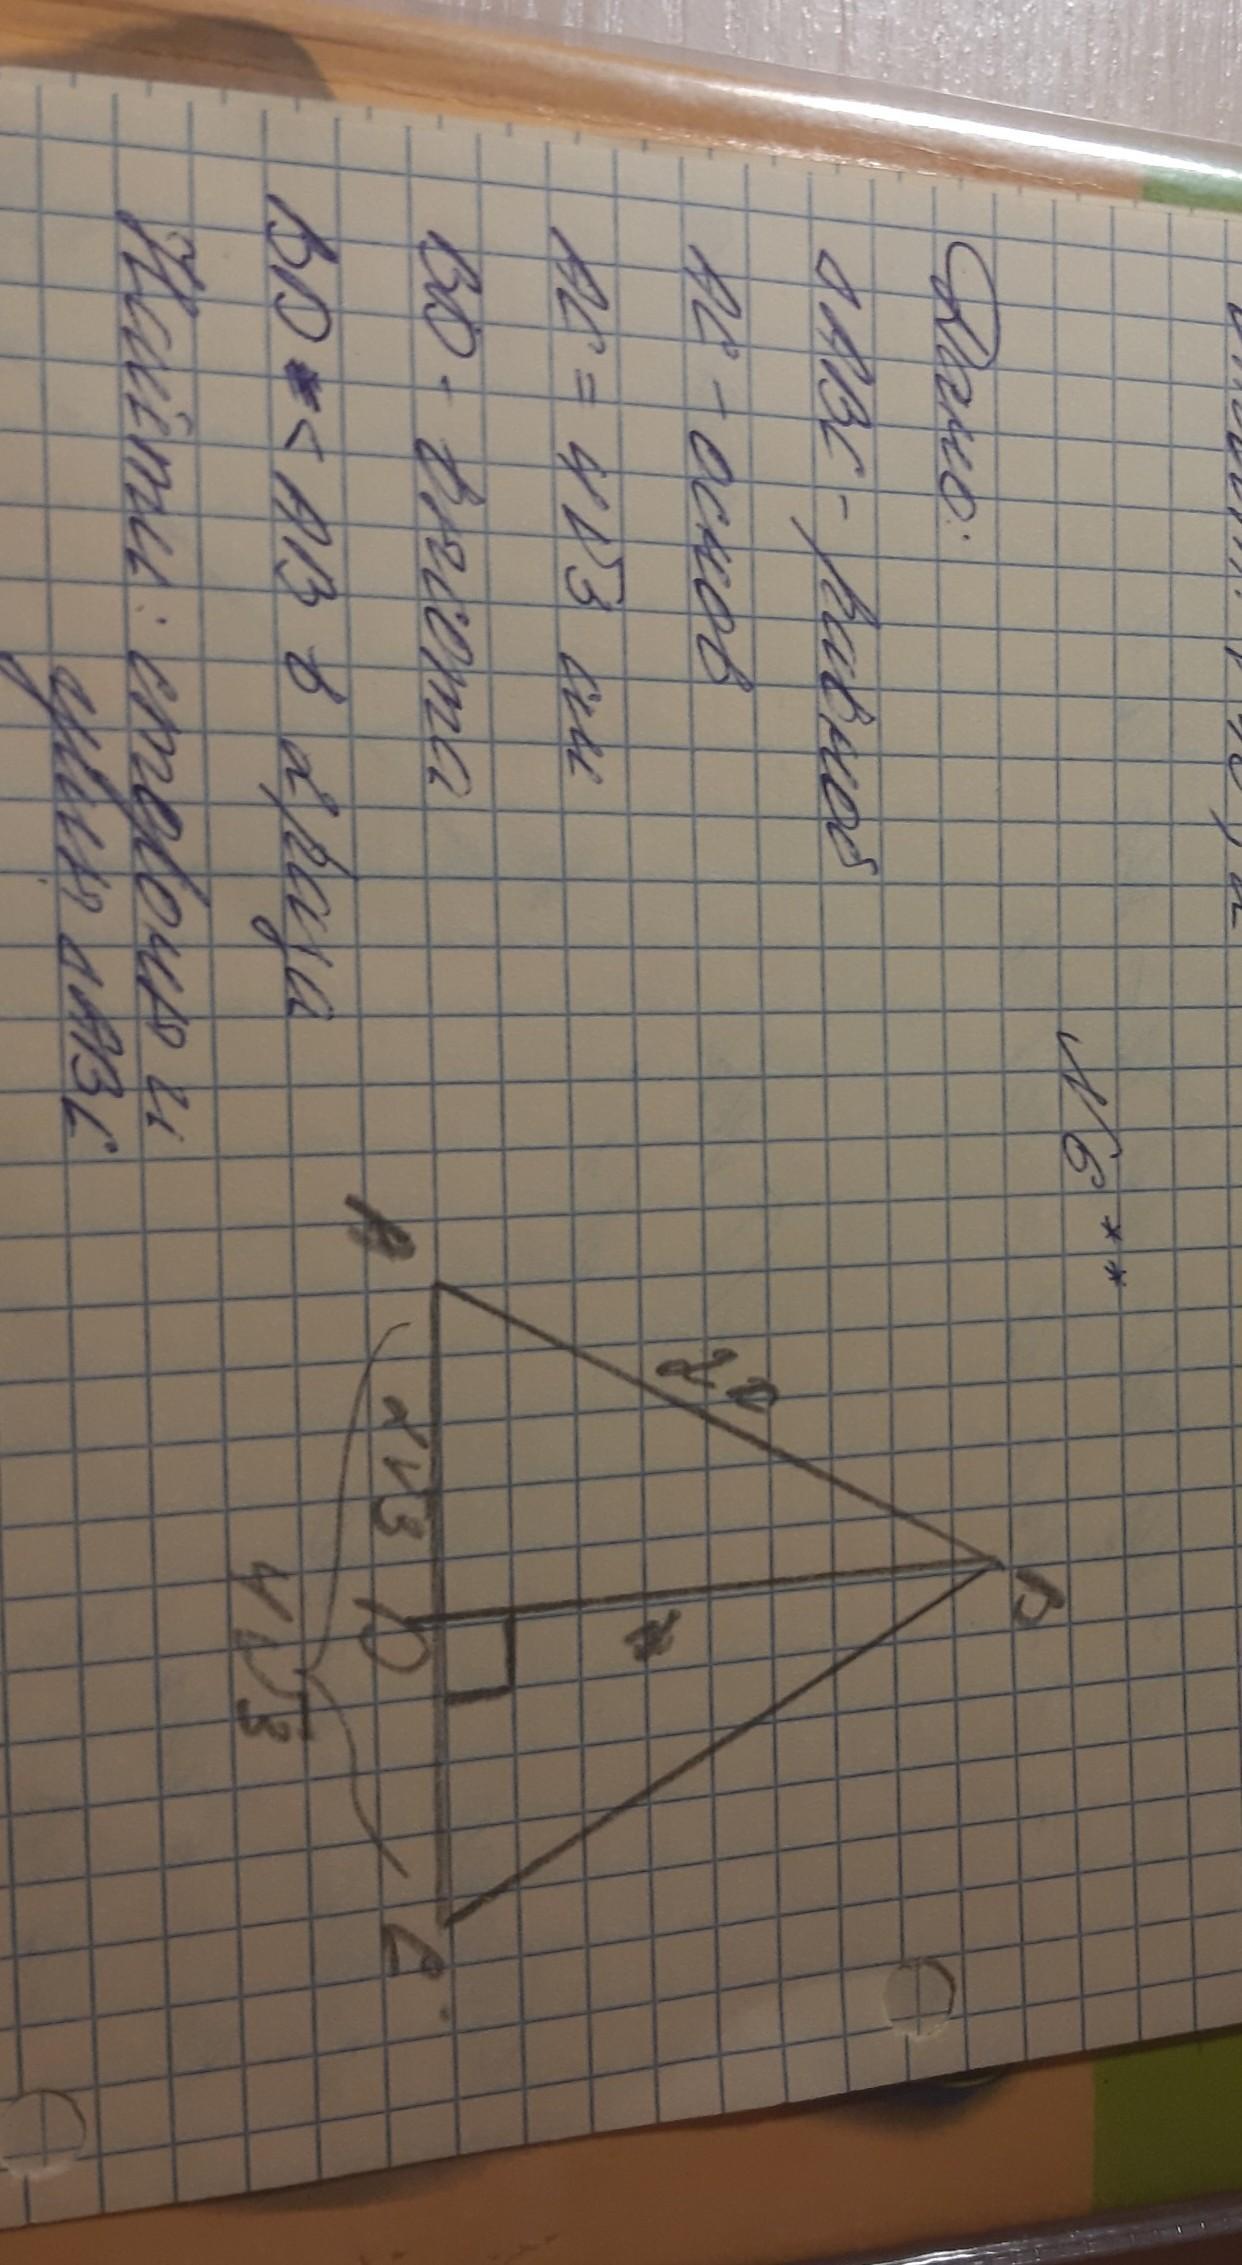 N 6 **
Дано:
△ABC - равноб
AC - основ
AC = 4√3 см
BD - высота
BD < AB в 2 раза
Найти: стороны и
углы △ABC
B
2x
x
A
2√3
D
C
4√3